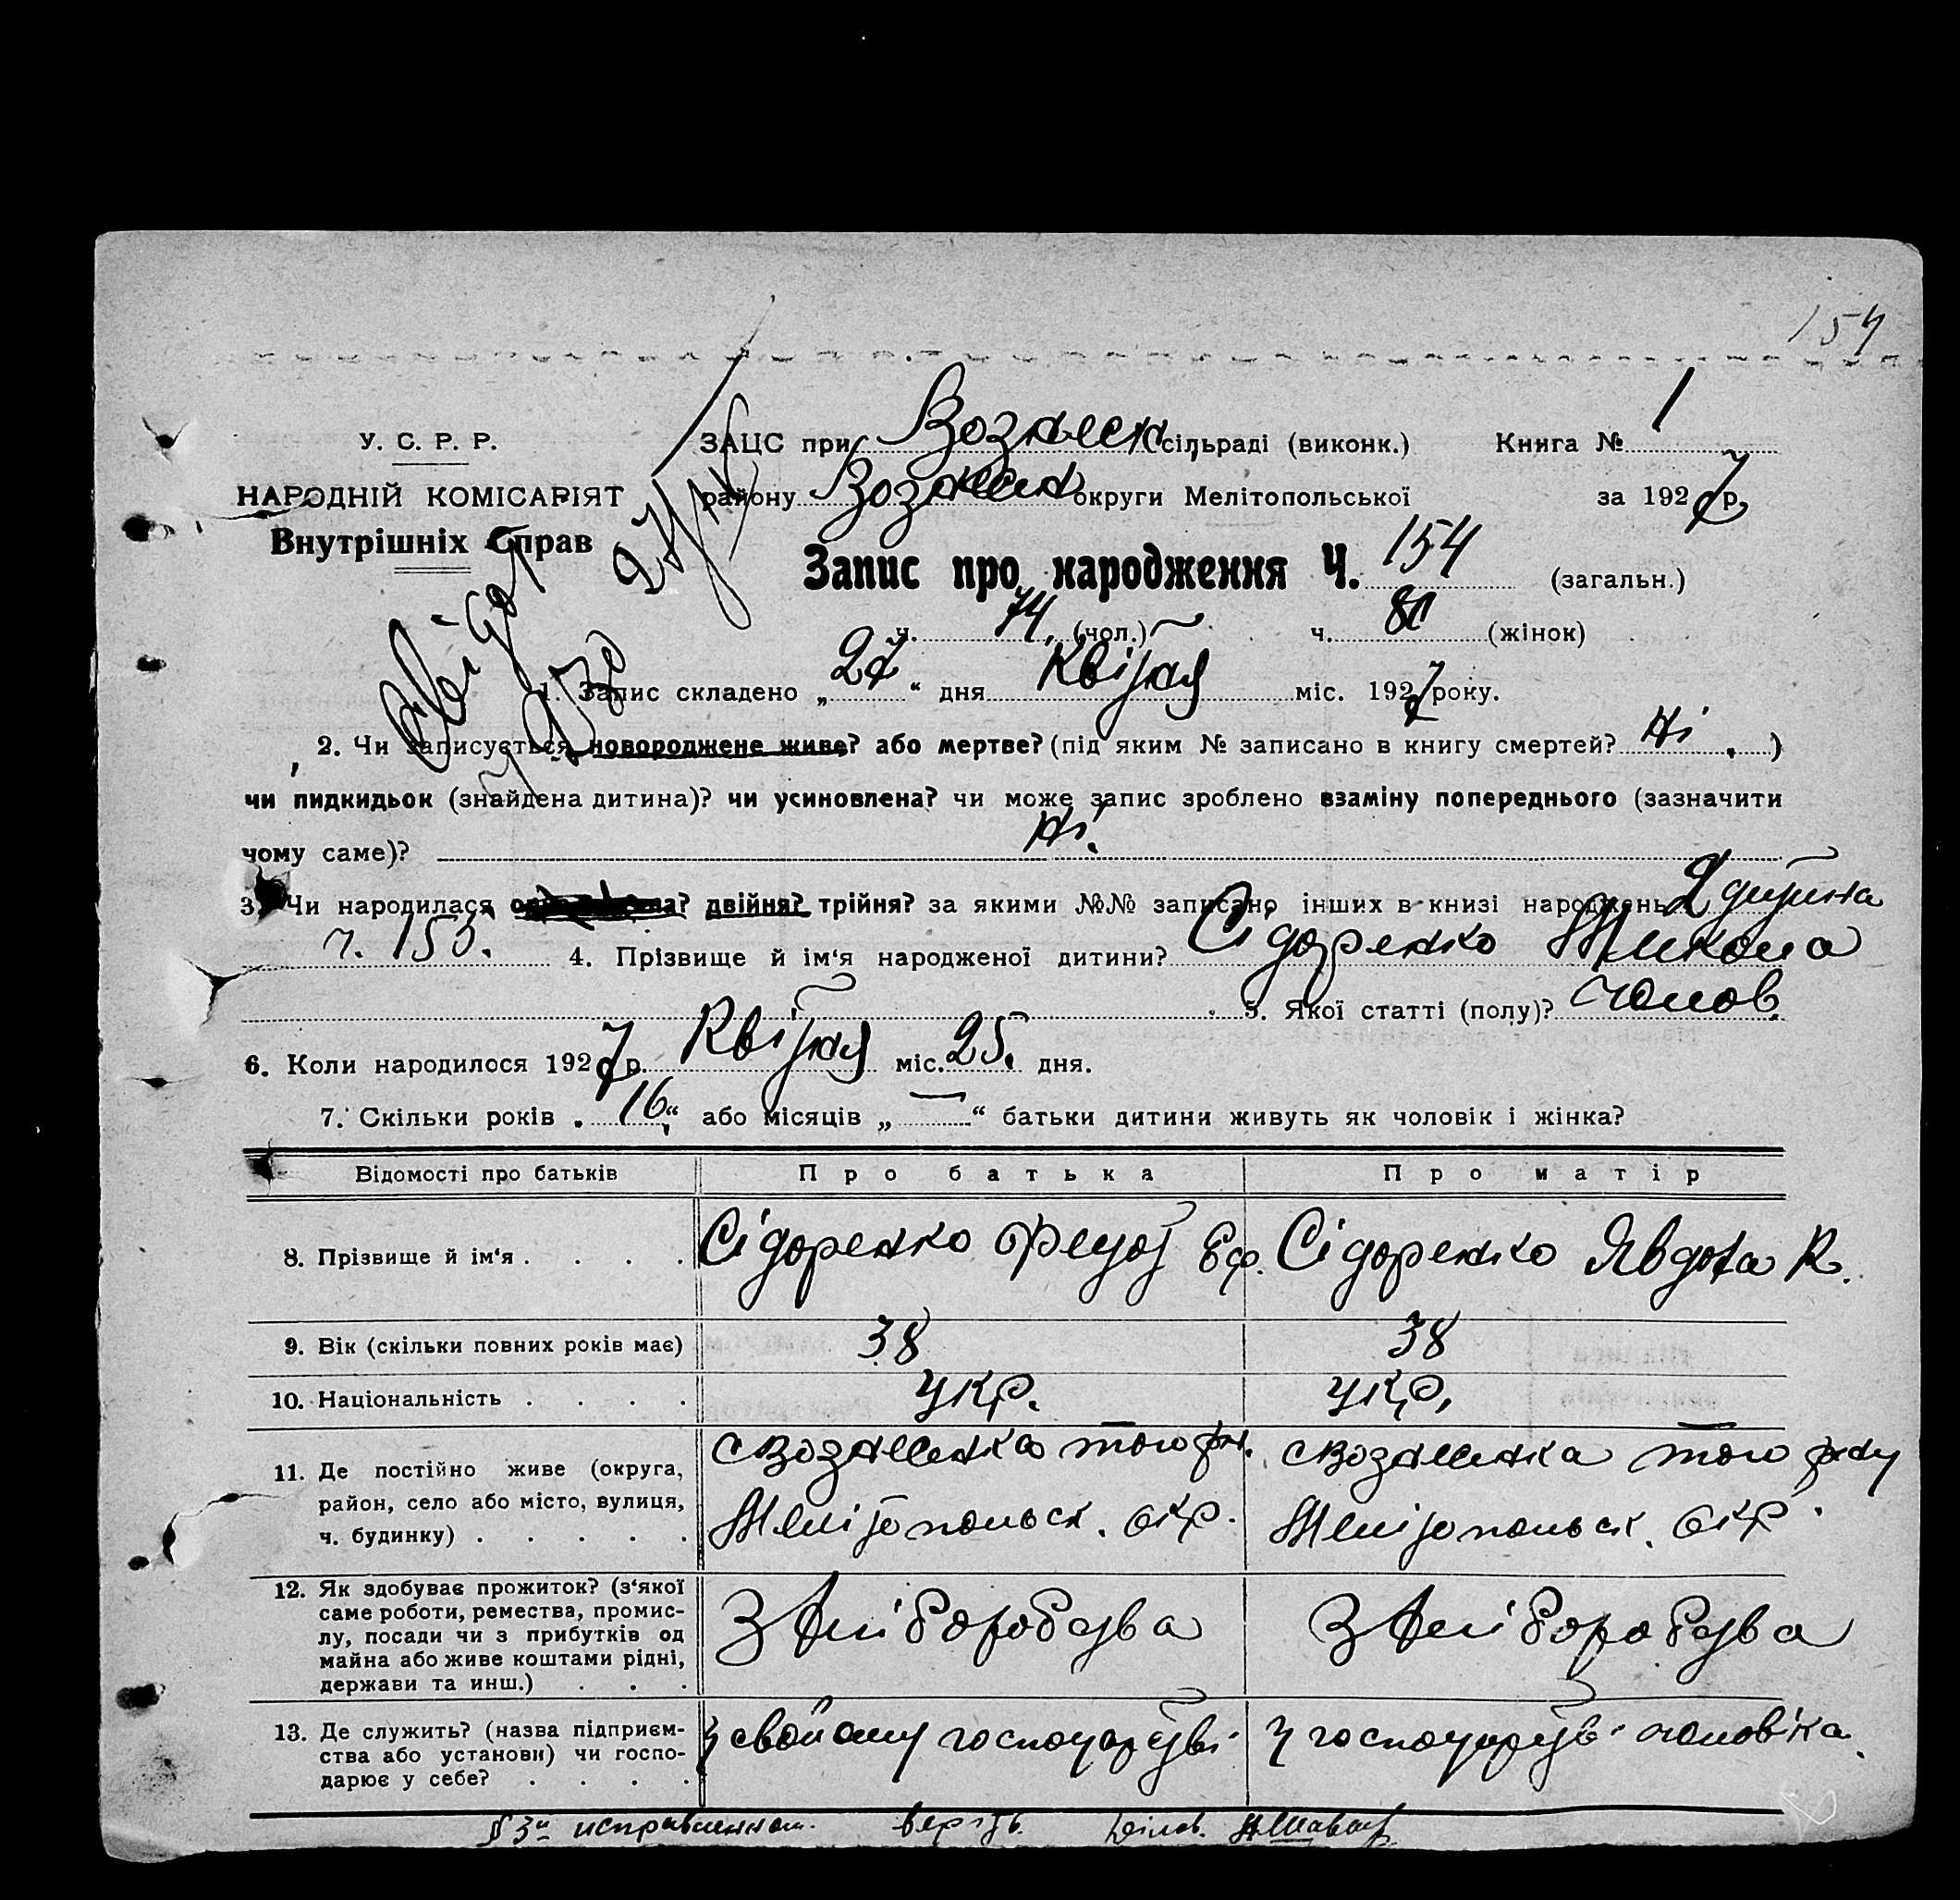 154
У. С. Р. Р.
ЗАЦС при Вознесен сільраді (виконк.) Книга № 1
НАРОДНІЙ КОМІСАРІЯТ району Вознесен округи Мелітопольської за 1927 р.
Внутрішніх Справ
Запис про народження Ч. 154 (загальн.)
ч. 74 (чол.) ч. 80 (жінок)
1. Запис складено „ 27 “ дня Квітня міс. 1927 року.
2. Чи записується новороджене живе? або мертве? (під яким № записано в книгу смертей? Ні. )
чи пидкидьок (знайдена дитина)? чи усиновлена? чи може запис зроблено взаміну попереднього (зазначити
чому саме)? Ні.
3. Чи народилася двійня? трійня? за якими №№ записано інших в книзі народжень 2 дитина
ч. 153. 4. Прізвище й ім‘я народженої дитини? Сідоренко Микола
5. Якої статті (полу)? Чолов.
6. Коли народилося 1927 р. Квітня міс. 25. дня.
7. Скільки років „ 16 “ або місяців „ — “ батьки дитини живуть як чоловік і жінка?
Відомості про батьків Про батька Про матір
8. Прізвище й ім‘я . . . . Сідоренко Федот Єф. Сідоренко Явдота К.
9. Вік (скільки повних років має) 38 38
10. Національність . . . . Укр. Укр.
11. Де постійно живе (округа, с Вознесенка того рн. с Вознесенка того р-ну
район, село або місто, вулиця, Мелітопольск. окр. Мелітопольск. окр.
ч. будинку) . . . . .
12. Як здобуває прожиток? (з‘якої
саме роботи, ремества, промис-
лу, посади чи з прибутків од З хліборобства З хліборобства
майна або живе коштами рідні,
держави та инш.) . . .
13. Де служить? (назва підприєм- У свойому господарстві У господарстві чоловіка
ства або установи) чи госпо-
дарює у себе? . . . .
§ 3й исправленном